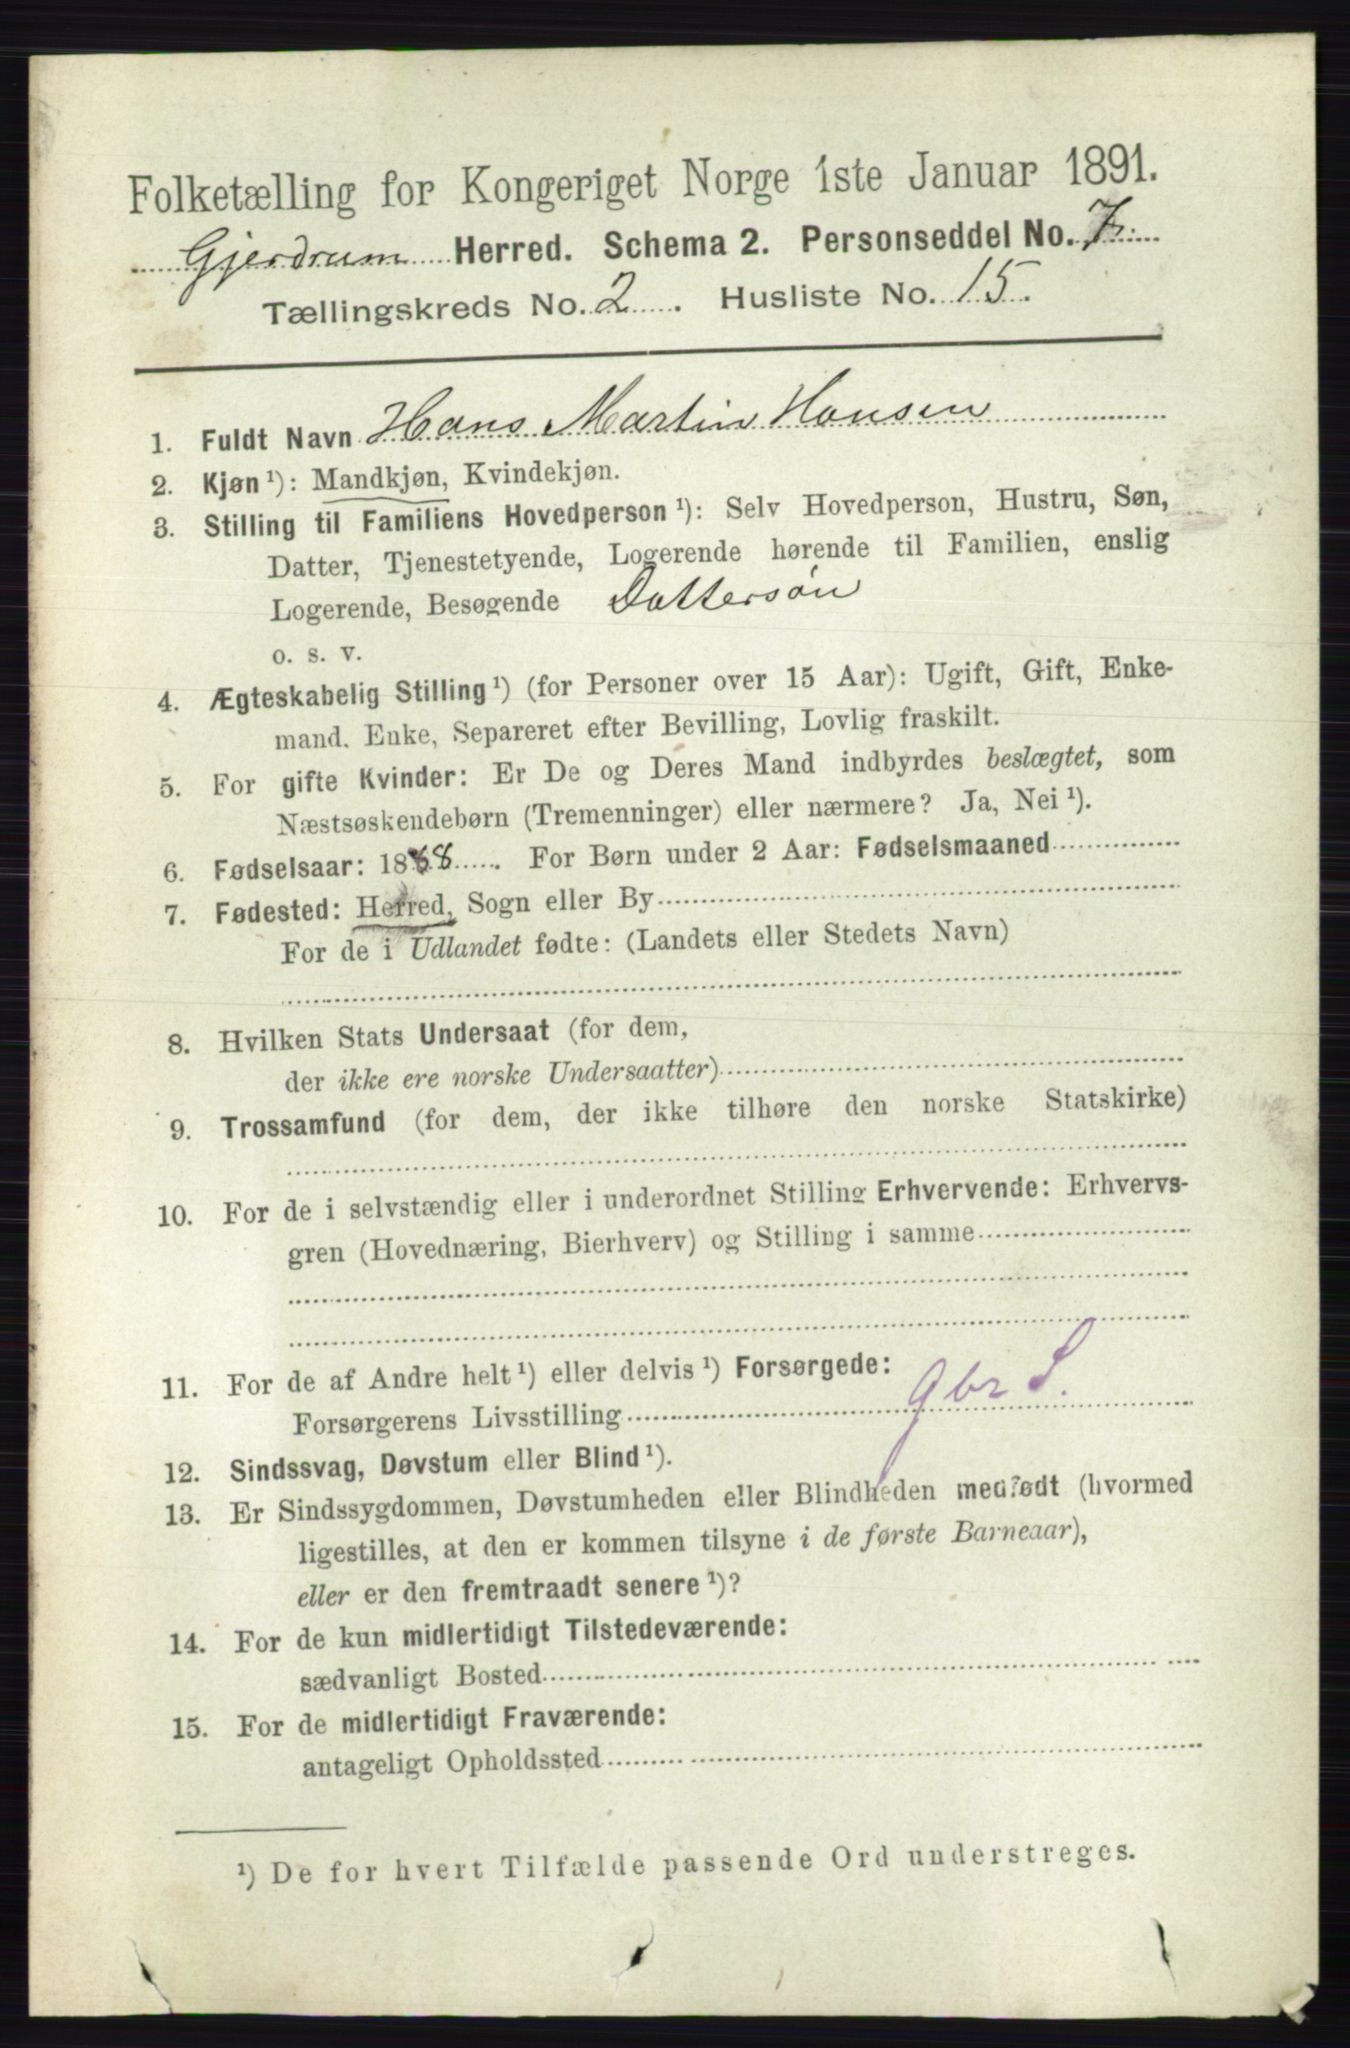 Folketælling for Kongeriget Norge 1ste Januar 1891.
Gjerdrum Herred. Schema 2. Personseddel No. 7.
Tællingskreds No. 2. Husliste No. 15.
1. Fuldt Navn Hans Martin Hansen
2. Kjøn ¹): Mandkjøn, Kvindekjøn.
3. Stilling til Familiens Hovedperson ¹): Selv Hovedperson, Hustru, Søn,
Datter, Tjenestetyende, Logerende hørende til Familien, enslig
Logerende, Besøgende Dattersøn
o. s. v.
4. Ægteskabelig Stilling ¹) (for Personer over 15 Aar): Ugift, Gift, Enke-
mand, Enke, Separeret efter Bevilling, Lovlig fraskilt.
5. For gifte Kvinder: Er De og Deres Mand indbyrdes beslægtet, som
Næstsøskendebørn (Tremenninger) eller nærmere? Ja, Nei ¹).
6. Fødselsaar: 1888. For Børn under 2 Aar: Fødselsmaaned
7. Fødested: Herred, Sogn eller By
For de i Udlandet fødte: (Landets eller Stedets Navn)
8. Hvilken Stats Undersaat (for dem,
der ikke ere norske Undersaatter)
9. Trossamfund (for dem, der ikke tilhøre den norske Statskirke)
10. For de i selvstændig eller i underordnet Stilling Erhvervende: Erhvervs-
gren (Hovednæring, Bierhverv) og Stilling i samme
11. For de af Andre helt ¹) eller delvis ¹) Forsørgede:
Forsørgerens Livsstilling gbr S.
12. Sindssvag, Døvstum eller Blind ¹).
13. Er Sindssygdommen, Døvstumheden eller Blindheden medfødt (hvormed
ligestilles, at den er kommen tilsyne i de første Barneaar),
eller er den fremtraadt senere ¹)?
14. For de kun midlertidigt Tilstedeværende:
sædvanligt Bosted
15. For de midlertidigt Fraværende:
antageligt Opholdssted
¹) De for hvert Tilfælde passende Ord understreges.